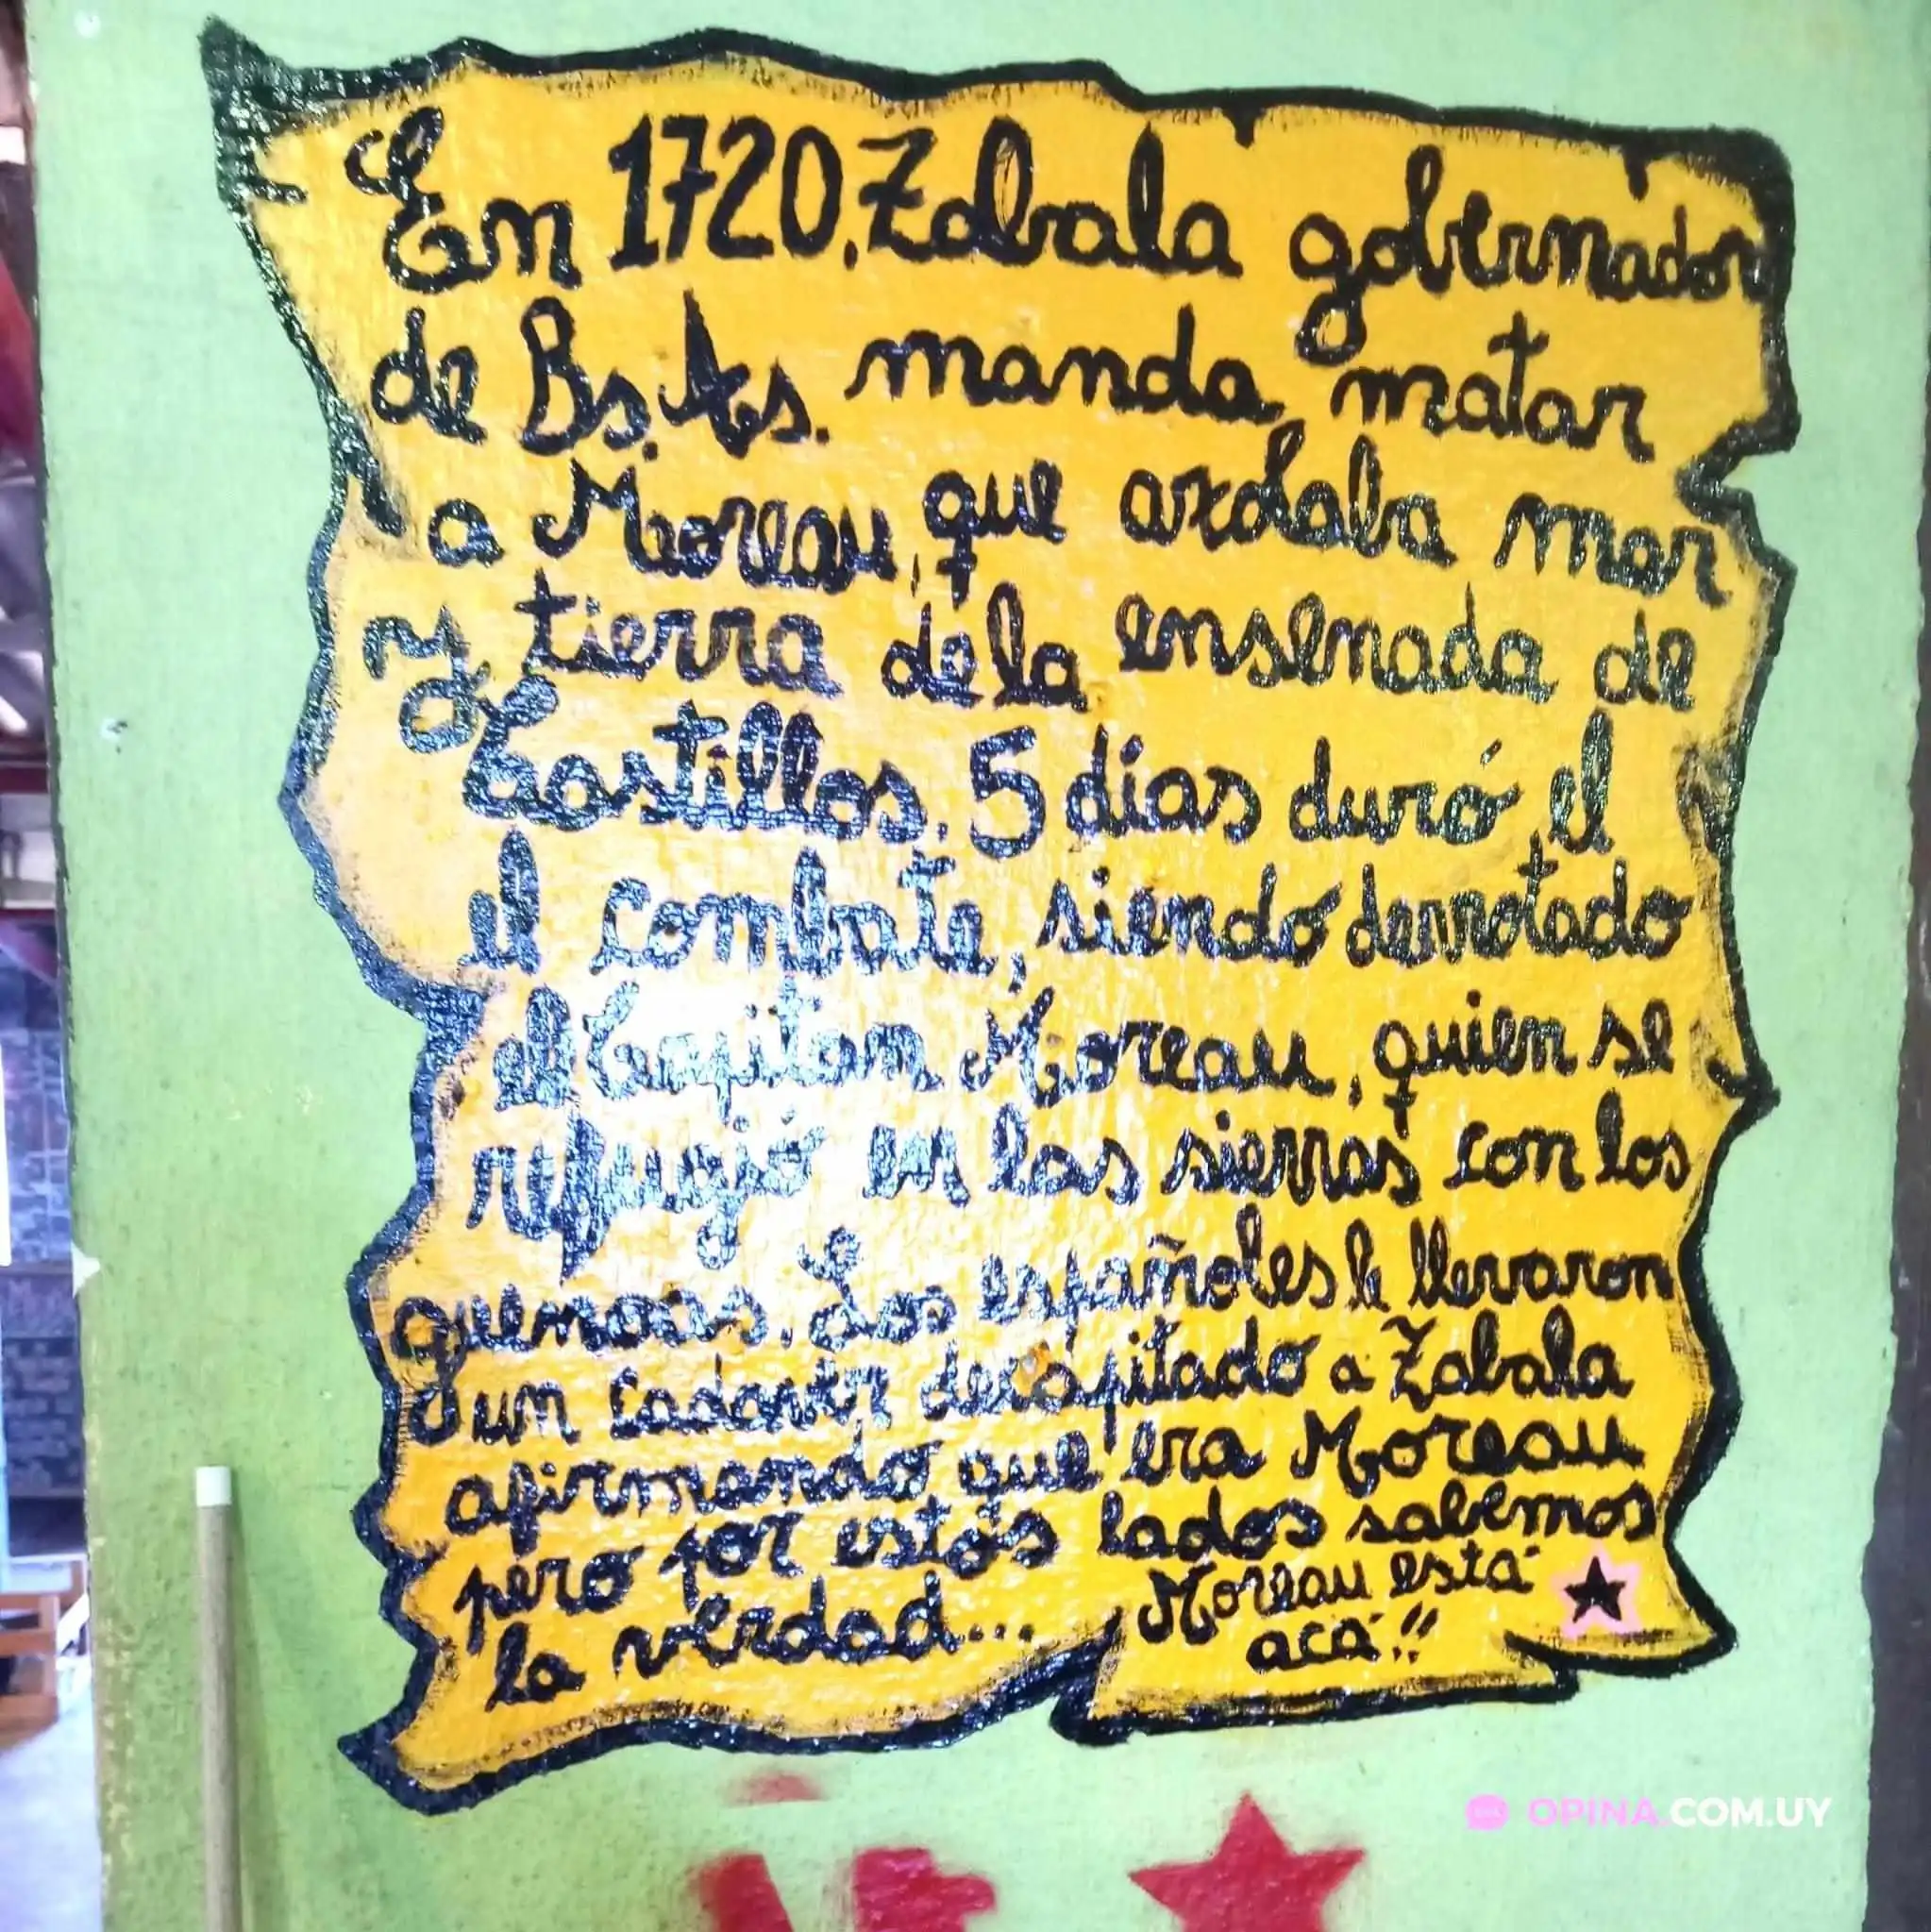 En 1720, Zabala gobernador
de Bs.As. manda matar
a Moreau, que axolaba mar
y tierra de la ensenada de
Castillos. 5 días duró el
el combate, siendo derrotado
el Capitan Moreau, quien se
refugió en las sierras con los
guenoas. Los españoles le llevaron
un cadaver decapitado a Zabala
afirmando que era Moreau
pero por estos lados sabemos
la verdad... Moreau está
acá!!
OPINA.COM.UY